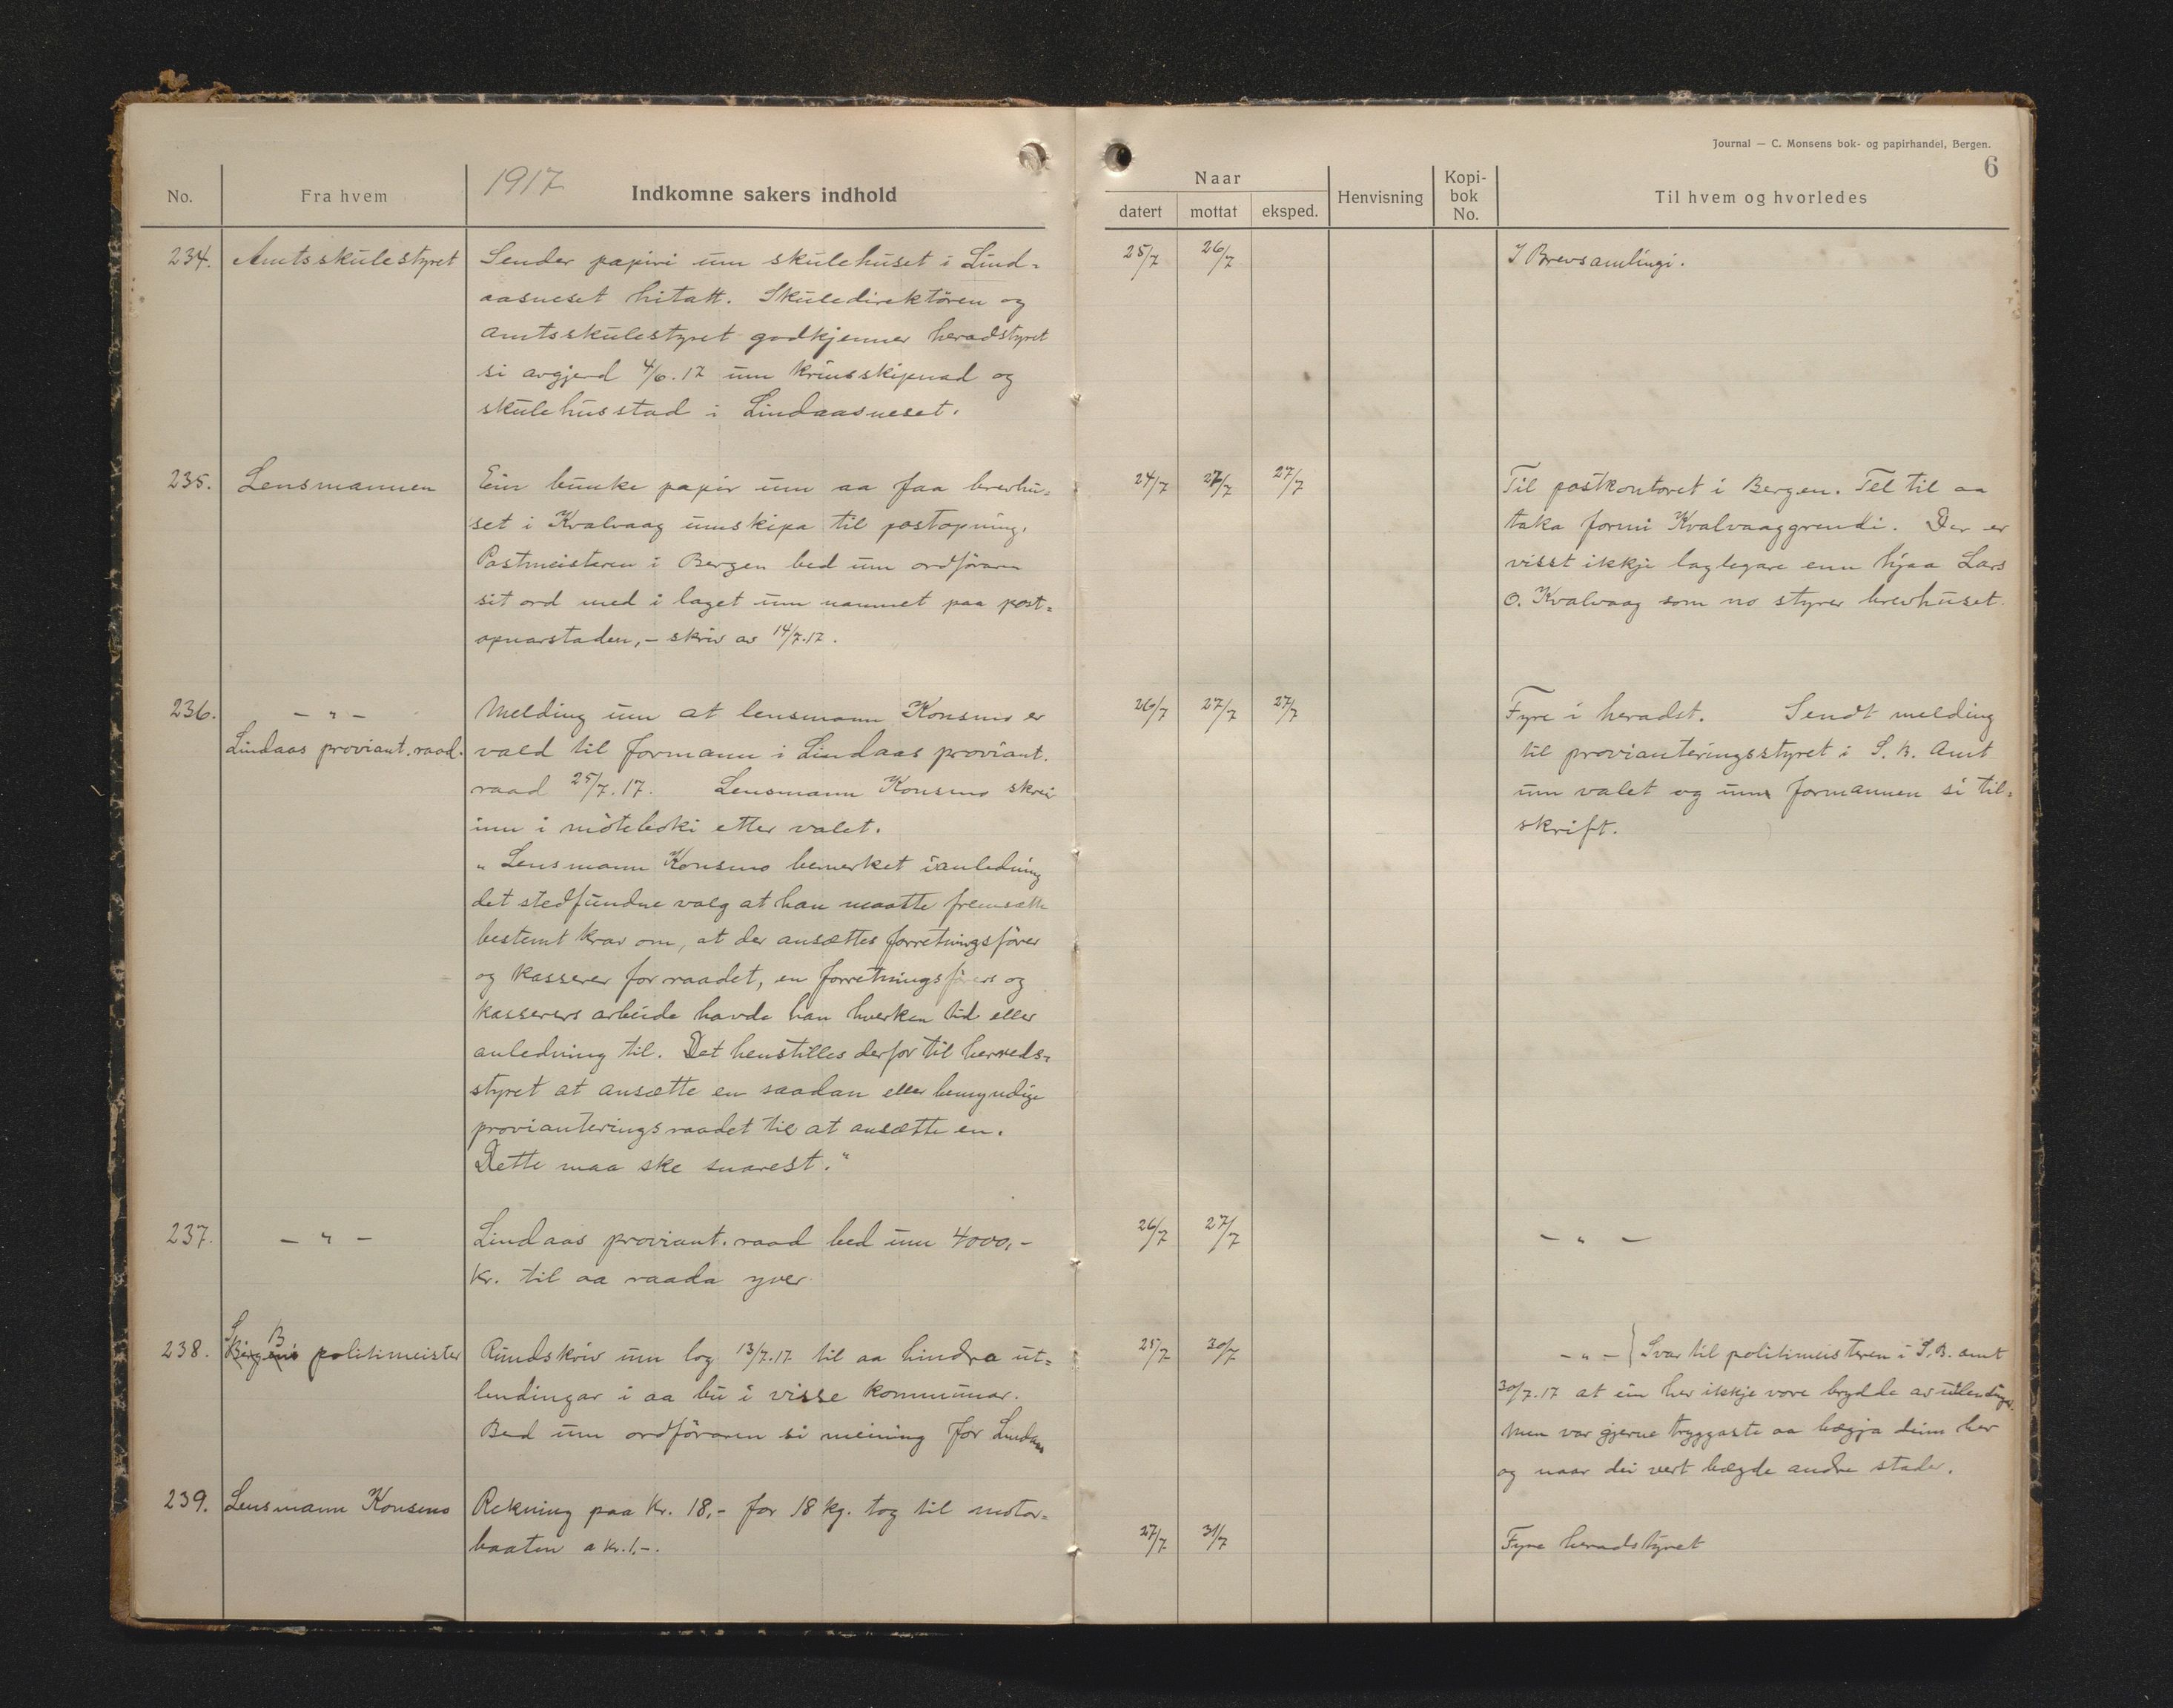 Journal — C. Monsens bok- og papirhandel, Bergen.
6
1917
No.
Fra hvem
Indkomne sakers indhold
Naar
datert
mottat
eksped.
Henvisning
Kopi-
bok
No.
Til hvem og hvorledes
234.
Amtsskulestyret
Sender papiri um skulehuset i Lind-
aasneset hitatt. Skuledirektören og
amtsskulestyret godkjenner heradstyret
si avgjerd 4/6.17 um krinsskipnad og
skulehusstad i Lindaasneset.
25/7
26/7
I Brevsamlingi.
235.
Lensmannen
Ein bunke papir um aa faa brevhu-
set i Kvalvaag umskipa til postopning.
Postmeisteren i Bergen bed um ordföraren
sit ord med i laget um namnet paa post-
opnarstaden, - skriv av 14/7.17.
24/7
27/7
27/7
Til postkontoret i Bergen. Tel til aa
taka formi Kvalvaaggrendi. Der er
visst ikkje laglegare enn hjaa Lars
O. Kvalvaag som no styrer brevhuset.
236.
- " -
Lindaas proviant.raad.
Melding um at lensmann Konsmo er
vald til formann i Lindaas proviant.
raad 25/7.17. Lensmann Konsmo skreiv
inn i möteboki etter valet.
" Lensmann Konsmo bemerket i anledning
det stedfundne valg at han maatte fremsætte
bestemt krav om, at der ansættes forretningsförer
og kasserer for raadet, en forretningsförers og
kasserers arbeide havde han hverken tid eller
anledning til. Det henstilles derfor til herreds-
styret at ansætte en saadan eller bemyndige
provianteringsraadet til at ansætte en.
Dette maa ske snarest."
26/7
27/7
27/7
Fyre i heradst. Sendt melding
til provianteringsstyret i S. B. Amt
um valet og um formannen si til-
skrift.
237.
- " -
Lindaas proviant.raad bed um 4000,-
Kr. til aa raada yver
26/7
27/7
- " -
238.
S. B. politimeister
Rundskriv um log 13/7.17 til aa hindra ut-
lendingar i aa bu i visse kommunar.
Bed um ordföraren si meining for Lindaas
25/7
30/7
- " - } Svar til politimeisteren i S. B. amt
30/7.17 at ein her ikkje vore brydde av utlendingar.
Men var gjerne tryggaste aa bægja deim her
og naar dei vert bægde andre stader.
239.
Lensmann Konsmo
Rekning paa Kr. 18,- for 18 kg. tog til motor-
baaten a Kr. 1,-.
27/7
31/7
Fyre heradstyret